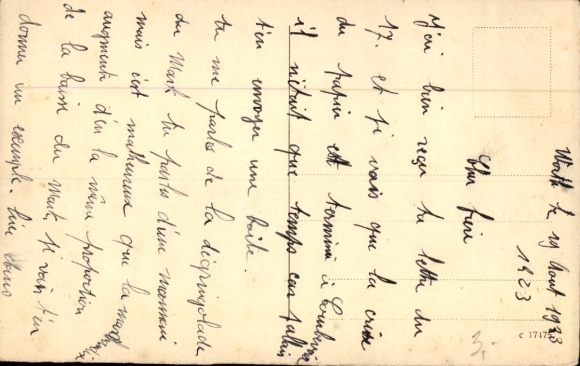 Worth le 19 Aout 1923
1923
Cher frère
J'ai bien reçu ta lettre du
17. et je vois que la crise
du papier est terminée à
il n'était que temps car j'allais
t'en envoyer une boite.
tu me parles de la dégringolade
du Mark tu parles d'une
mais c'est malheureux que la
augmente d'en la même proportion
de la baisse du Mark, je vais t'en
donner un exemple.
c 1747
3.